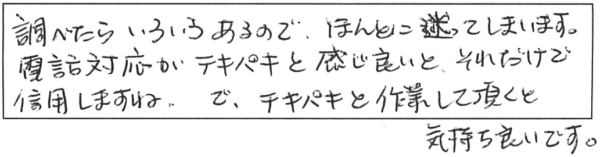 調べたらいろいろあるので、ほんとに迷ってしまいます。
電話対応がテキパキと感じ良いと、それだけで
信用しますね。で、テキパキと作業して頂くと
気持ち良いです。